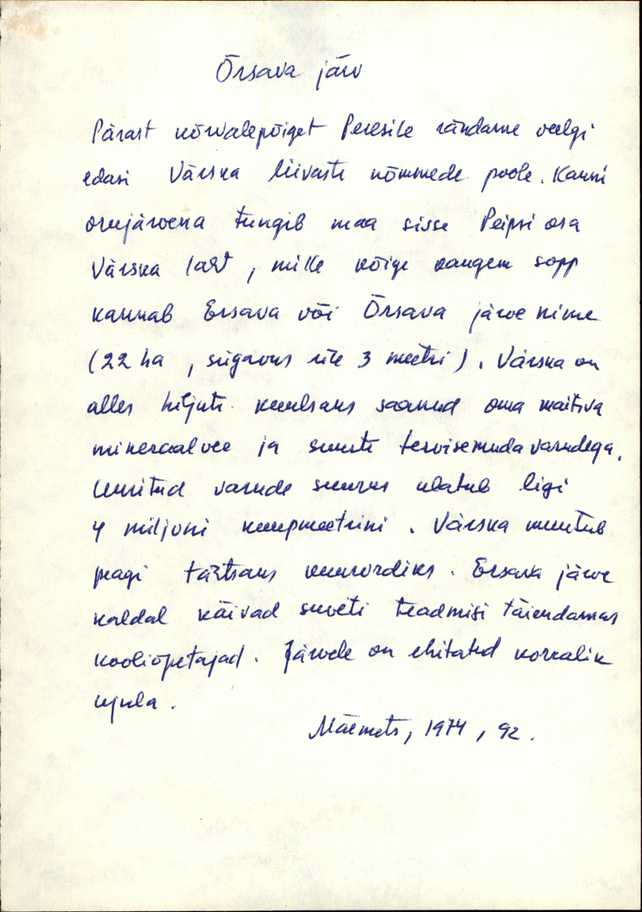 Õrsava järv
Pärast kõrvalepõiget Peresile rändame veelgi
edasi Värska liivaste nõmmede poole. Kauni
orujärvena tungib maa sisse Peipsi osa
Värska laht, mille kõige kaugem sopp
kannab Ersava või Õrsava järve nime
(22 ha, sügavus üle 3 meetri). Värska on
alles hiljuti kuulsaks saanud oma maitsva
mineraalvee ja suurte tervisemudavarudega.
Uuritud varude suurus ulatub ligi
4 miljoni kuupmeetrini. Värska muutub
peagi tähtsaks kuurordiks. Ersava järve
kaldal käivad suveti teadmisi täiendamas
kooliõpetajad. Järvele on ehitatud korralik
ujula.
Mäemets, 1974, 92.